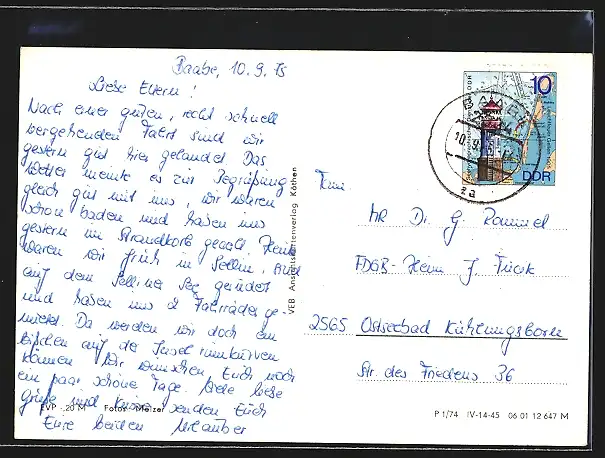 Baabe, 10.9.75
Liebe Eltern!
Nach einer guten, recht schnell
vergehenden Fahrt sind wir
gestern gut hier gelandet. Das
Wetter meinte es zur Begrüßung
gleich gut mit uns, wir waren
schon baden und haben uns
gestern im Strandkorb geaalt. Heute
waren wir früh in Sellin, sind
auf dem Selliner See gerudert
und haben uns 2 Fahrräder ge-
mietet. Da werden wir doch ein
bißchen auf der Insel rumkurven
können. Wir wünschen Euch noch
ein paar schöne Tage. Viele liebe
Grüße und Küsse senden Euch
Eure beiden Urlauber
EVP -,20 M Foto: Melzer
VEB Ansichtskartenverlag Köthen
10
DDR
BAABE
10.9.
za
Fam.
MR Dr. G. Rammel
FDGB-Heim J. Fucik
2565 Ostseebad Kühlungsborn
Str. des Friedens 36
P 1/74 IV-14-45 06 01 12 647 M